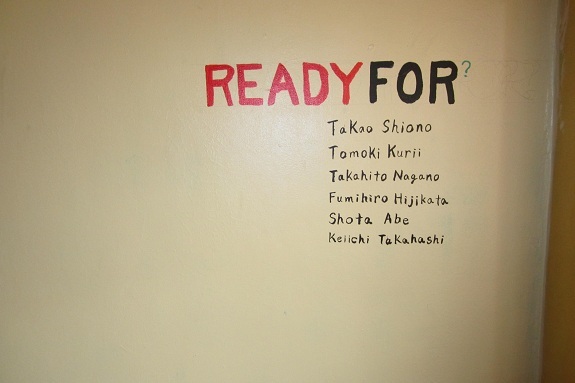 READYFOR?
Takao Shiono
Tomoki Kurii
Takahito Nagano
Fumihiro Hijikata
Shota Abe
Keiichi Takahashi